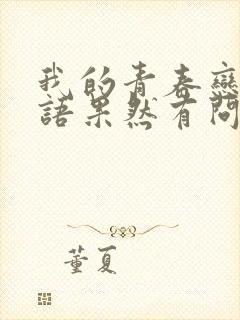 我的青春戀
語果然有問
董夏